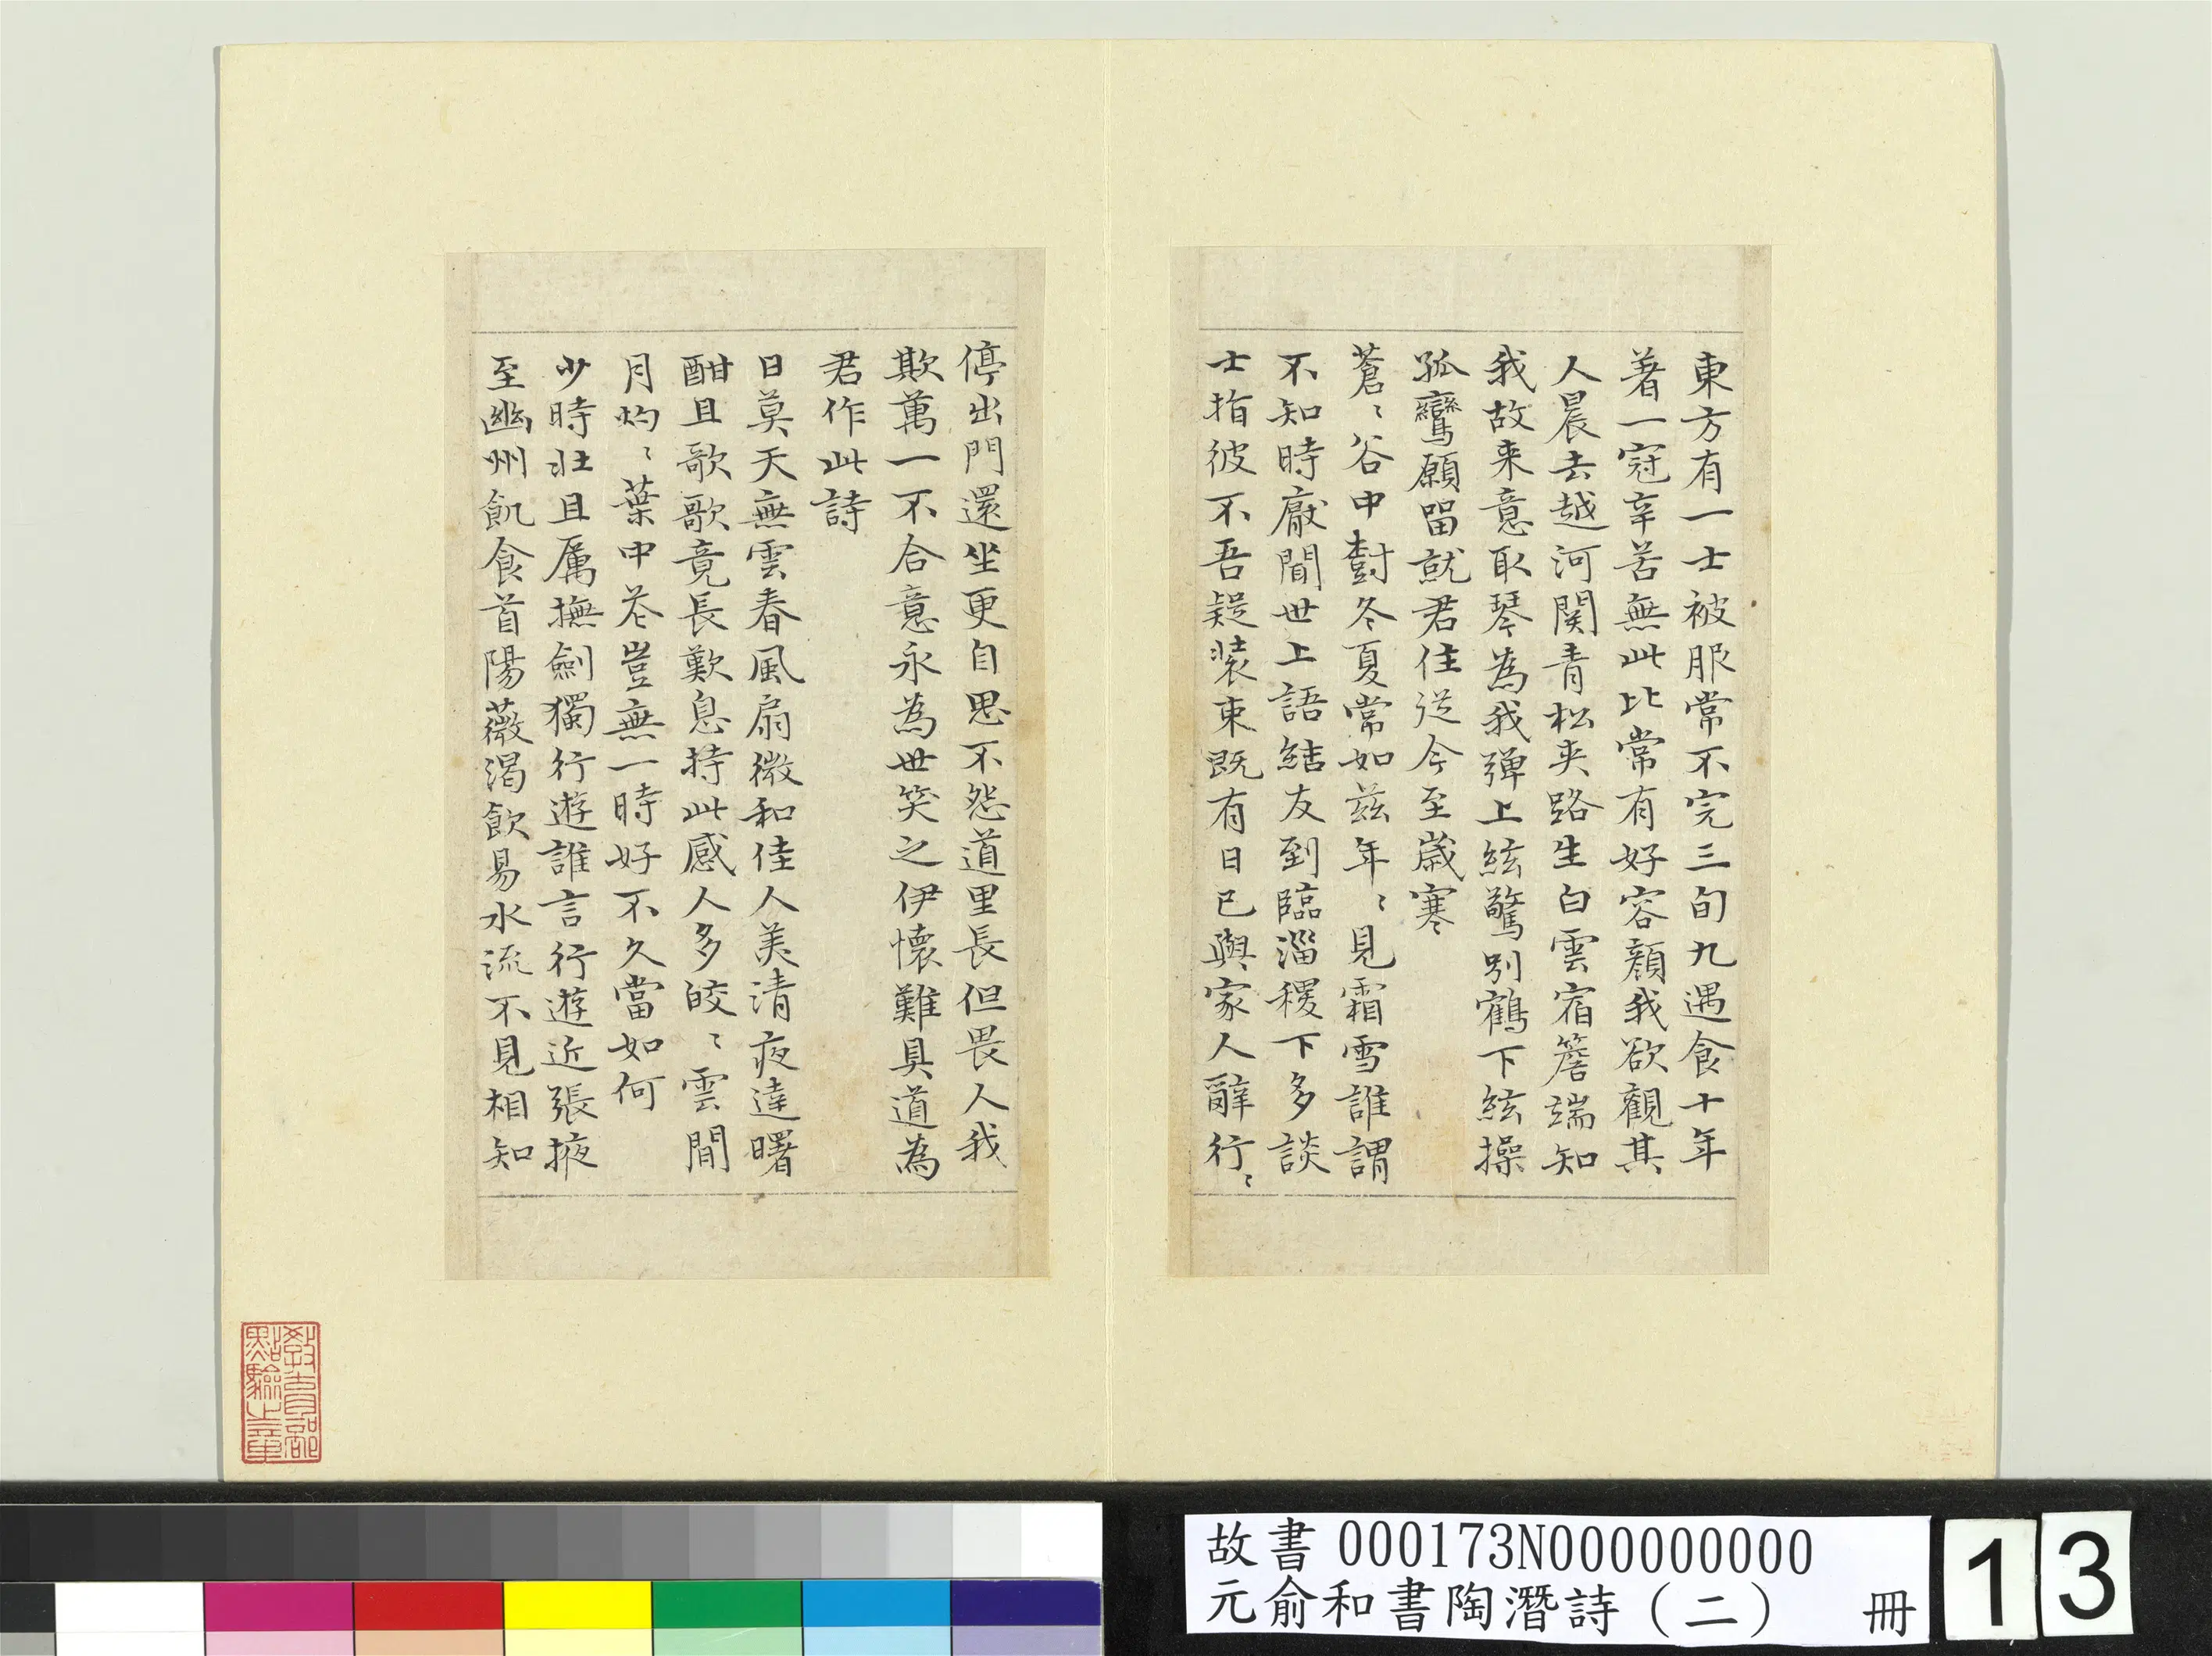 東方有一士被服常不完三旬九遇食十年
著一冠辛苦無此比常有好容顏我欲觀其
人晨去越河関青松夾路生白雲宿簷端知
我故来意取琴為我彈上絃驚別鶴下絃操
孤鸞願留就君住從今至歲寒
蒼〻谷中樹冬夏常如茲年〻見霜雪誰謂
不知時厭聞世上語結友到臨淄稷下多談
士指彼不吾疑装束既有日已與家人辭行〻
停出門還坐更自思不怨道里長但畏人我
欺萬一不合意永為世笑之伊懷難具道為
君作此詩
日莫天無雲春風扇微和佳人美清夜達曙
酣且歌歌竟長歎息持此感人多皎〻雲間
月灼〻葉中花豈無一時好不久當如何
少時壯且厲撫劍獨行遊誰言行遊近張掖
至幽州飢食首陽薇渴飲易水流不見相知
教育部
點驗之章
故書 000173N000000000
元俞和書陶潛詩（二） 冊
13